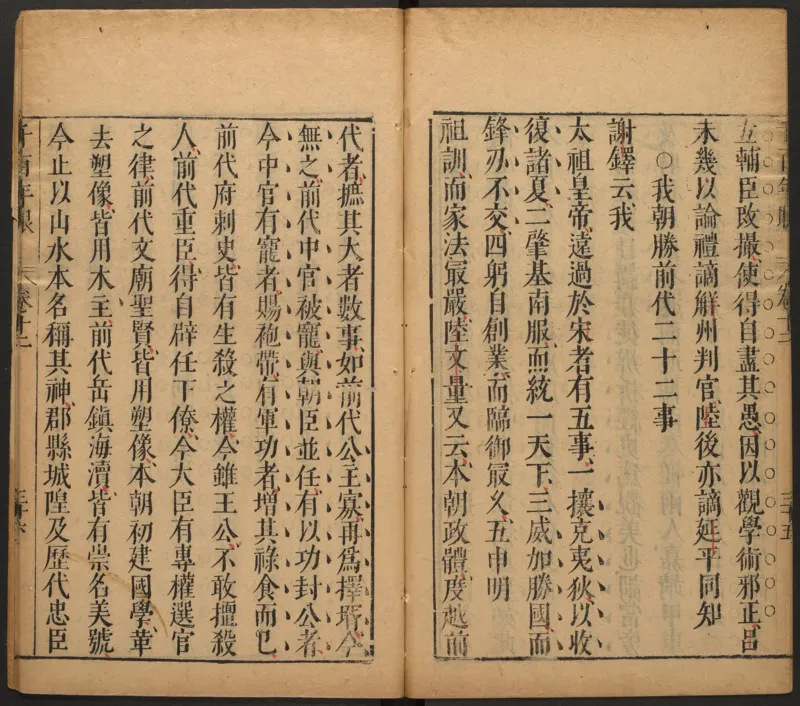 互輔臣改撤使得自盡其愚因以觀學術邪正呂
未幾以論禮謫解州判官陸後亦謫延平同知
○我朝勝前代二十二事
謝鐸云我
太祖皇帝遠過於宋者有五事一攘克夷狄以收
復諸夏二肇基南服而統一天下三威加勝國而
鋒刃不交四躬自創業而臨御最久五申明
祖訓而家法最嚴陸文量又云本朝政體度越前
三十五
代者摭其大者數事如前代公主寡再爲擇壻今
無之前代中官被寵與朝臣並任有以功封公者
今中官有寵者賜袍帶有軍功者增其祿食而已
前代府刺史皆有生殺之權今雖王公不敢擅殺
人前代重臣得自辟任下僚今大臣有專權選官
之律前代文廟聖賢皆用塑像本朝初建國學革
去塑像皆用木主前代岳鎮海瀆皆有崇名美號
今止以山水本名稱其神郡縣城隍及歷代忠臣
卷十二
三十六